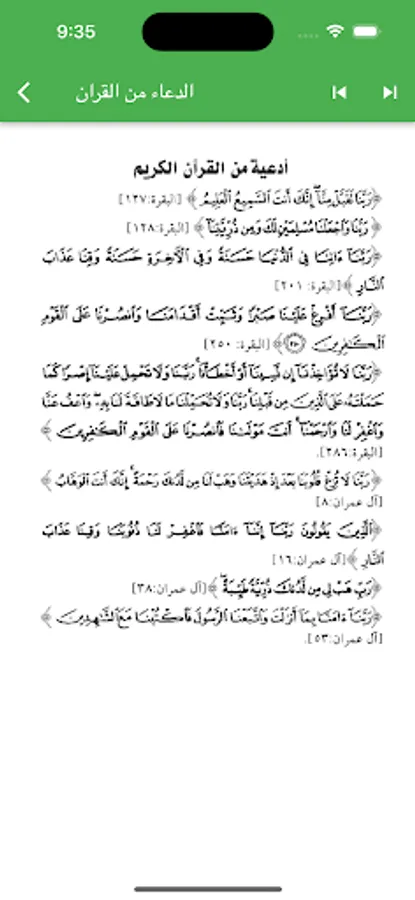 9:35
الدعاء من القران
أدعية من القرآن الكريم
﴿رَبَّنَا تَقَبَّلْ مِنَّا إِنَّكَ أَنتَ السَّمِيعُ الْعَلِيمُ﴾ [البقرة:١٢٧]
﴿رَبَّنَا وَاجْعَلْنَا مُسْلِمَيْنِ لَكَ وَمِن ذُرِّيَّتِنَا﴾ [البقرة:١٢٨]
﴿رَبَّنَا ءَاتِنَا فِي الدُّنْيَا حَسَنَةً وَفِي الْآخِرَةِ حَسَنَةً وَقِنَا عَذَابَ
النَّارِ﴾ [البقرة: ٢٠١]
﴿رَبَّنَا أَفْرِغْ عَلَيْنَا صَبْرًا وَثَبِّتْ أَقْدَامَنَا وَانصُرْنَا عَلَى الْقَوْمِ
الْكَافِرِينَ ۝٢٥٠﴾ [البقرة: ٢٥٠]
﴿رَبَّنَا لَا تُؤَاخِذْنَا إِن نَّسِينَا أَوْ أَخْطَأْنَا رَبَّنَا وَلَا تَحْمِلْ عَلَيْنَا إِصْرًا كَمَا
حَمَلْتَهُ عَلَى الَّذِينَ مِن قَبْلِنَا رَبَّنَا وَلَا تُحَمِّلْنَا مَا لَا طَاقَةَ لَنَا بِهِ وَاعْفُ عَنَّا
وَاغْفِرْ لَنَا وَارْحَمْنَا أَنتَ مَوْلَانَا فَانصُرْنَا عَلَى الْقَوْمِ الْكَافِرِينَ﴾
[البقرة:٢٨٦].
﴿رَبَّنَا لَا تُزِغْ قُلُوبَنَا بَعْدَ إِذْ هَدَيْتَنَا وَهَبْ لَنَا مِن لَّدُنكَ رَحْمَةً إِنَّكَ أَنتَ الْوَهَّابُ﴾
[آل عمران:٨]
﴿الَّذِينَ يَقُولُونَ رَبَّنَا إِنَّنَا ءَامَنَّا فَاغْفِرْ لَنَا ذُنُوبَنَا وَقِنَا عَذَابَ
النَّارِ﴾ [آل عمران:١٦]
﴿رَبِّ هَبْ لِي مِن لَّدُنكَ ذُرِّيَّةً طَيِّبَةً﴾ [آل عمران:٣٨]
﴿رَبَّنَا ءَامَنَّا بِمَا أَنزَلْتَ وَاتَّبَعْنَا الرَّسُولَ فَاكْتُبْنَا مَعَ الشَّاهِدِينَ﴾
[آل عمران:٥٣].